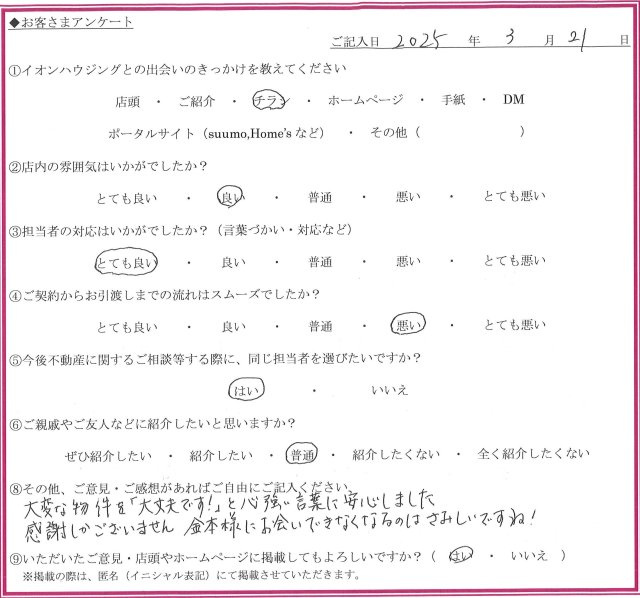 ◆お客さまアンケート
ご記入日 2025 年 3 月 21 日
①イオンハウジングとの出会いのきっかけを教えてください
店頭 ・ ご紹介 ・ チラシ ・ ホームページ ・ 手紙 ・ DM
ポータルサイト（suumo,Home'sなど） ・ その他（ ）
②店内の雰囲気はいかがでしたか？
とても良い ・ 良い ・ 普通 ・ 悪い ・ とても悪い
③担当者の対応はいかがでしたか？（言葉づかい・対応など）
とても良い ・ 良い ・ 普通 ・ 悪い ・ とても悪い
④ご契約からお引渡しまでの流れはスムーズでしたか？
とても良い ・ 良い ・ 普通 ・ 悪い ・ とても悪い
⑤今後不動産に関するご相談等する際に、同じ担当者を選びたいですか？
はい ・ いいえ
⑥ご親戚やご友人などに紹介したいと思いますか？
ぜひ紹介したい ・ 紹介したい ・ 普通 ・ 紹介したくない ・ 全く紹介したくない
⑧その他、ご意見・ご感想があればご自由にご記入ください。
大変な物件を「大丈夫です!」と心強い言葉に安心しました
感謝しかございません 金本様にお会いできなくなるのはさみしいですね!
⑨いただいたご意見・店頭やホームページに掲載してもよろしいですか？（ はい ・ いいえ ）
※掲載の際は、匿名（イニシャル表記）にて掲載させていただきます。